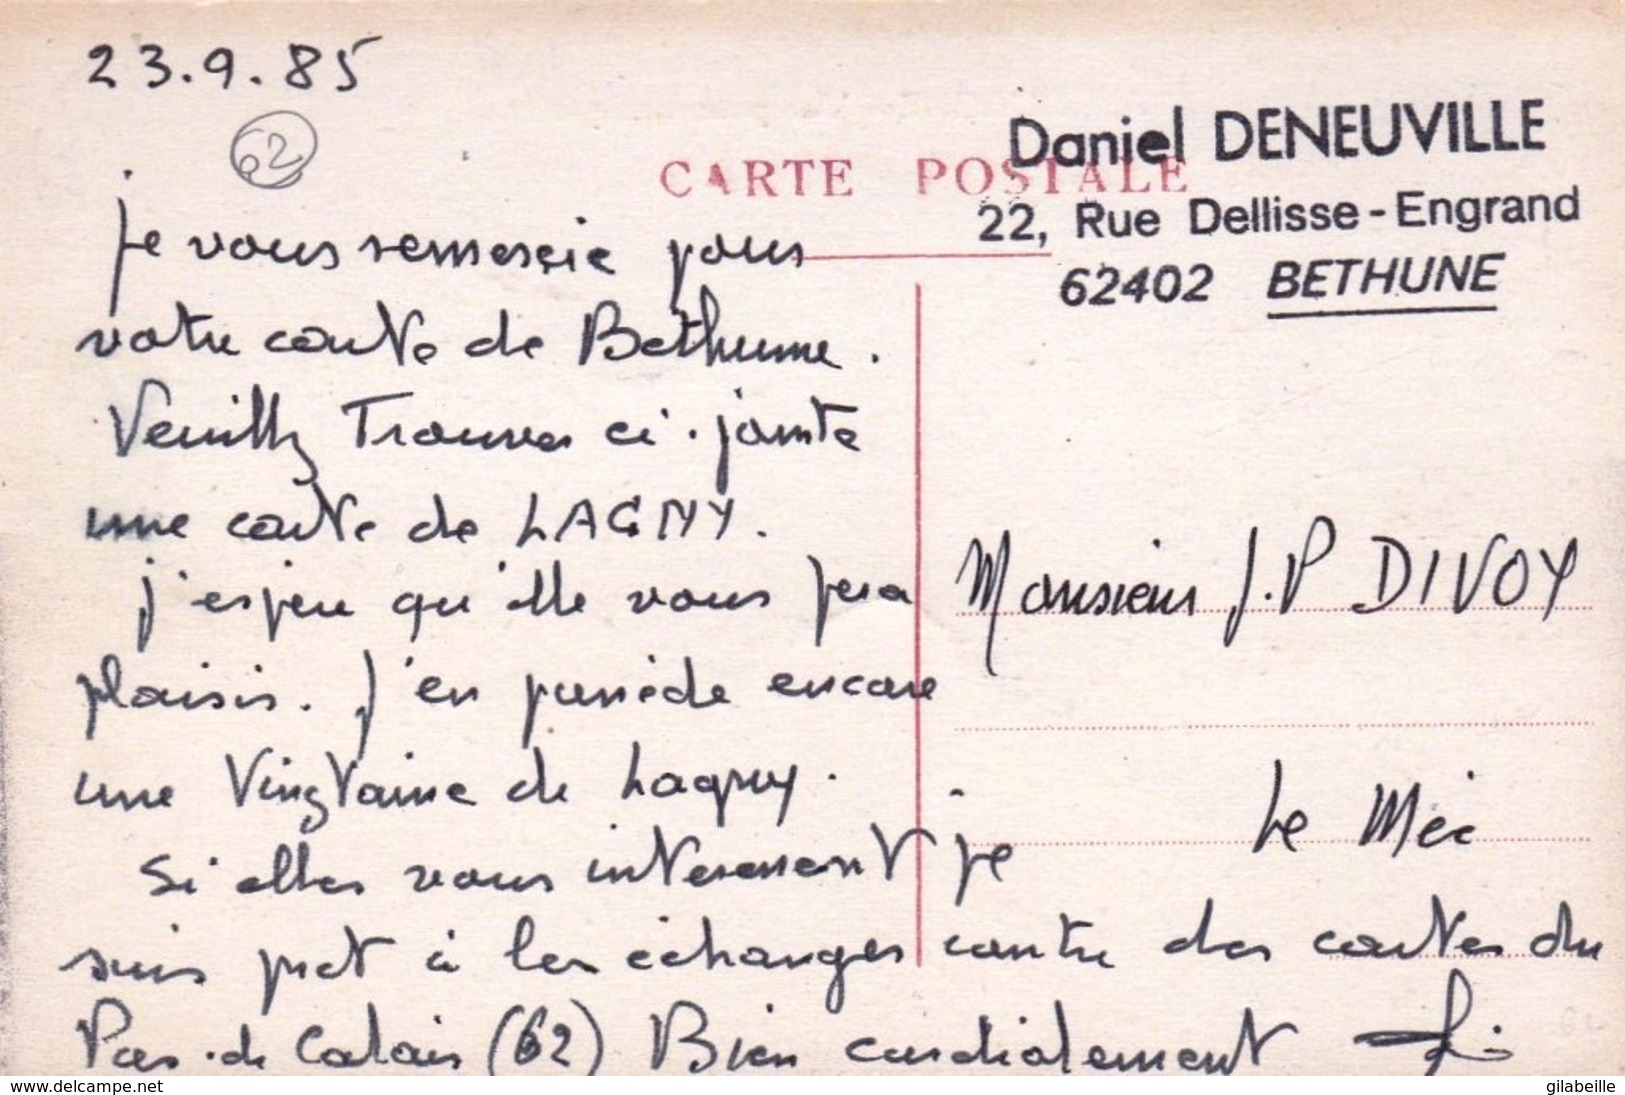 23.9.85
62
CARTE POSTALE
Daniel DENEUVILLE
22, Rue Dellisse-Engrand
62402 BETHUNE
Je vous remercie pour
votre carte de Bethune.
Veuillez Trouver ci-jointe
une carte de LAGNY.
J'espère qu'elle vous fera
plaisir. J'en possède encore
une Vingtaine de Lagny.
Si elles vous interessent je
suis prêt à les échanger contre des cartes du
Pas-de Calais (62) Bien cordialement
Monsieur J.P DIVOY
Le Mée
www.delcampe.net
gilabeille